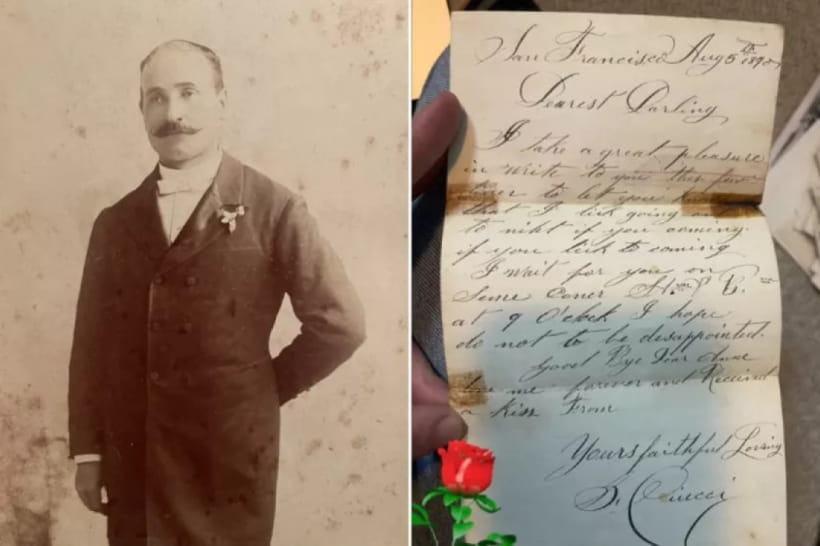 San Francisco Aug 5th 189
Dearest Darling
I take a great pleasure
in write to you this few
to let you know
that I lick going out
to niht if you coming.
if you lick to coming
I wait for you on
Seme Coner
at 9 O'clock I hope
do not to be desappointed.
Good Bye Dear
me forever and Receive
a kiss From
Yours faithful Loving
Ciucci